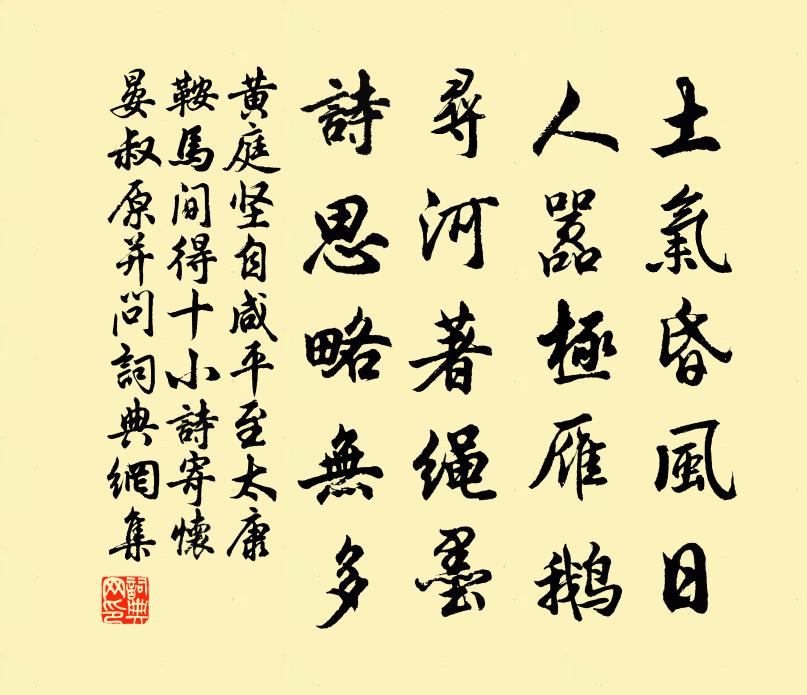 土氣昏風日
人嚣極雁鵝
尋河著绳墨
詩思略無多
黄庭坚自咸平至太康
鞍馬间得十小詩寄懷
晏叔原并問詞典網集
詞典网印